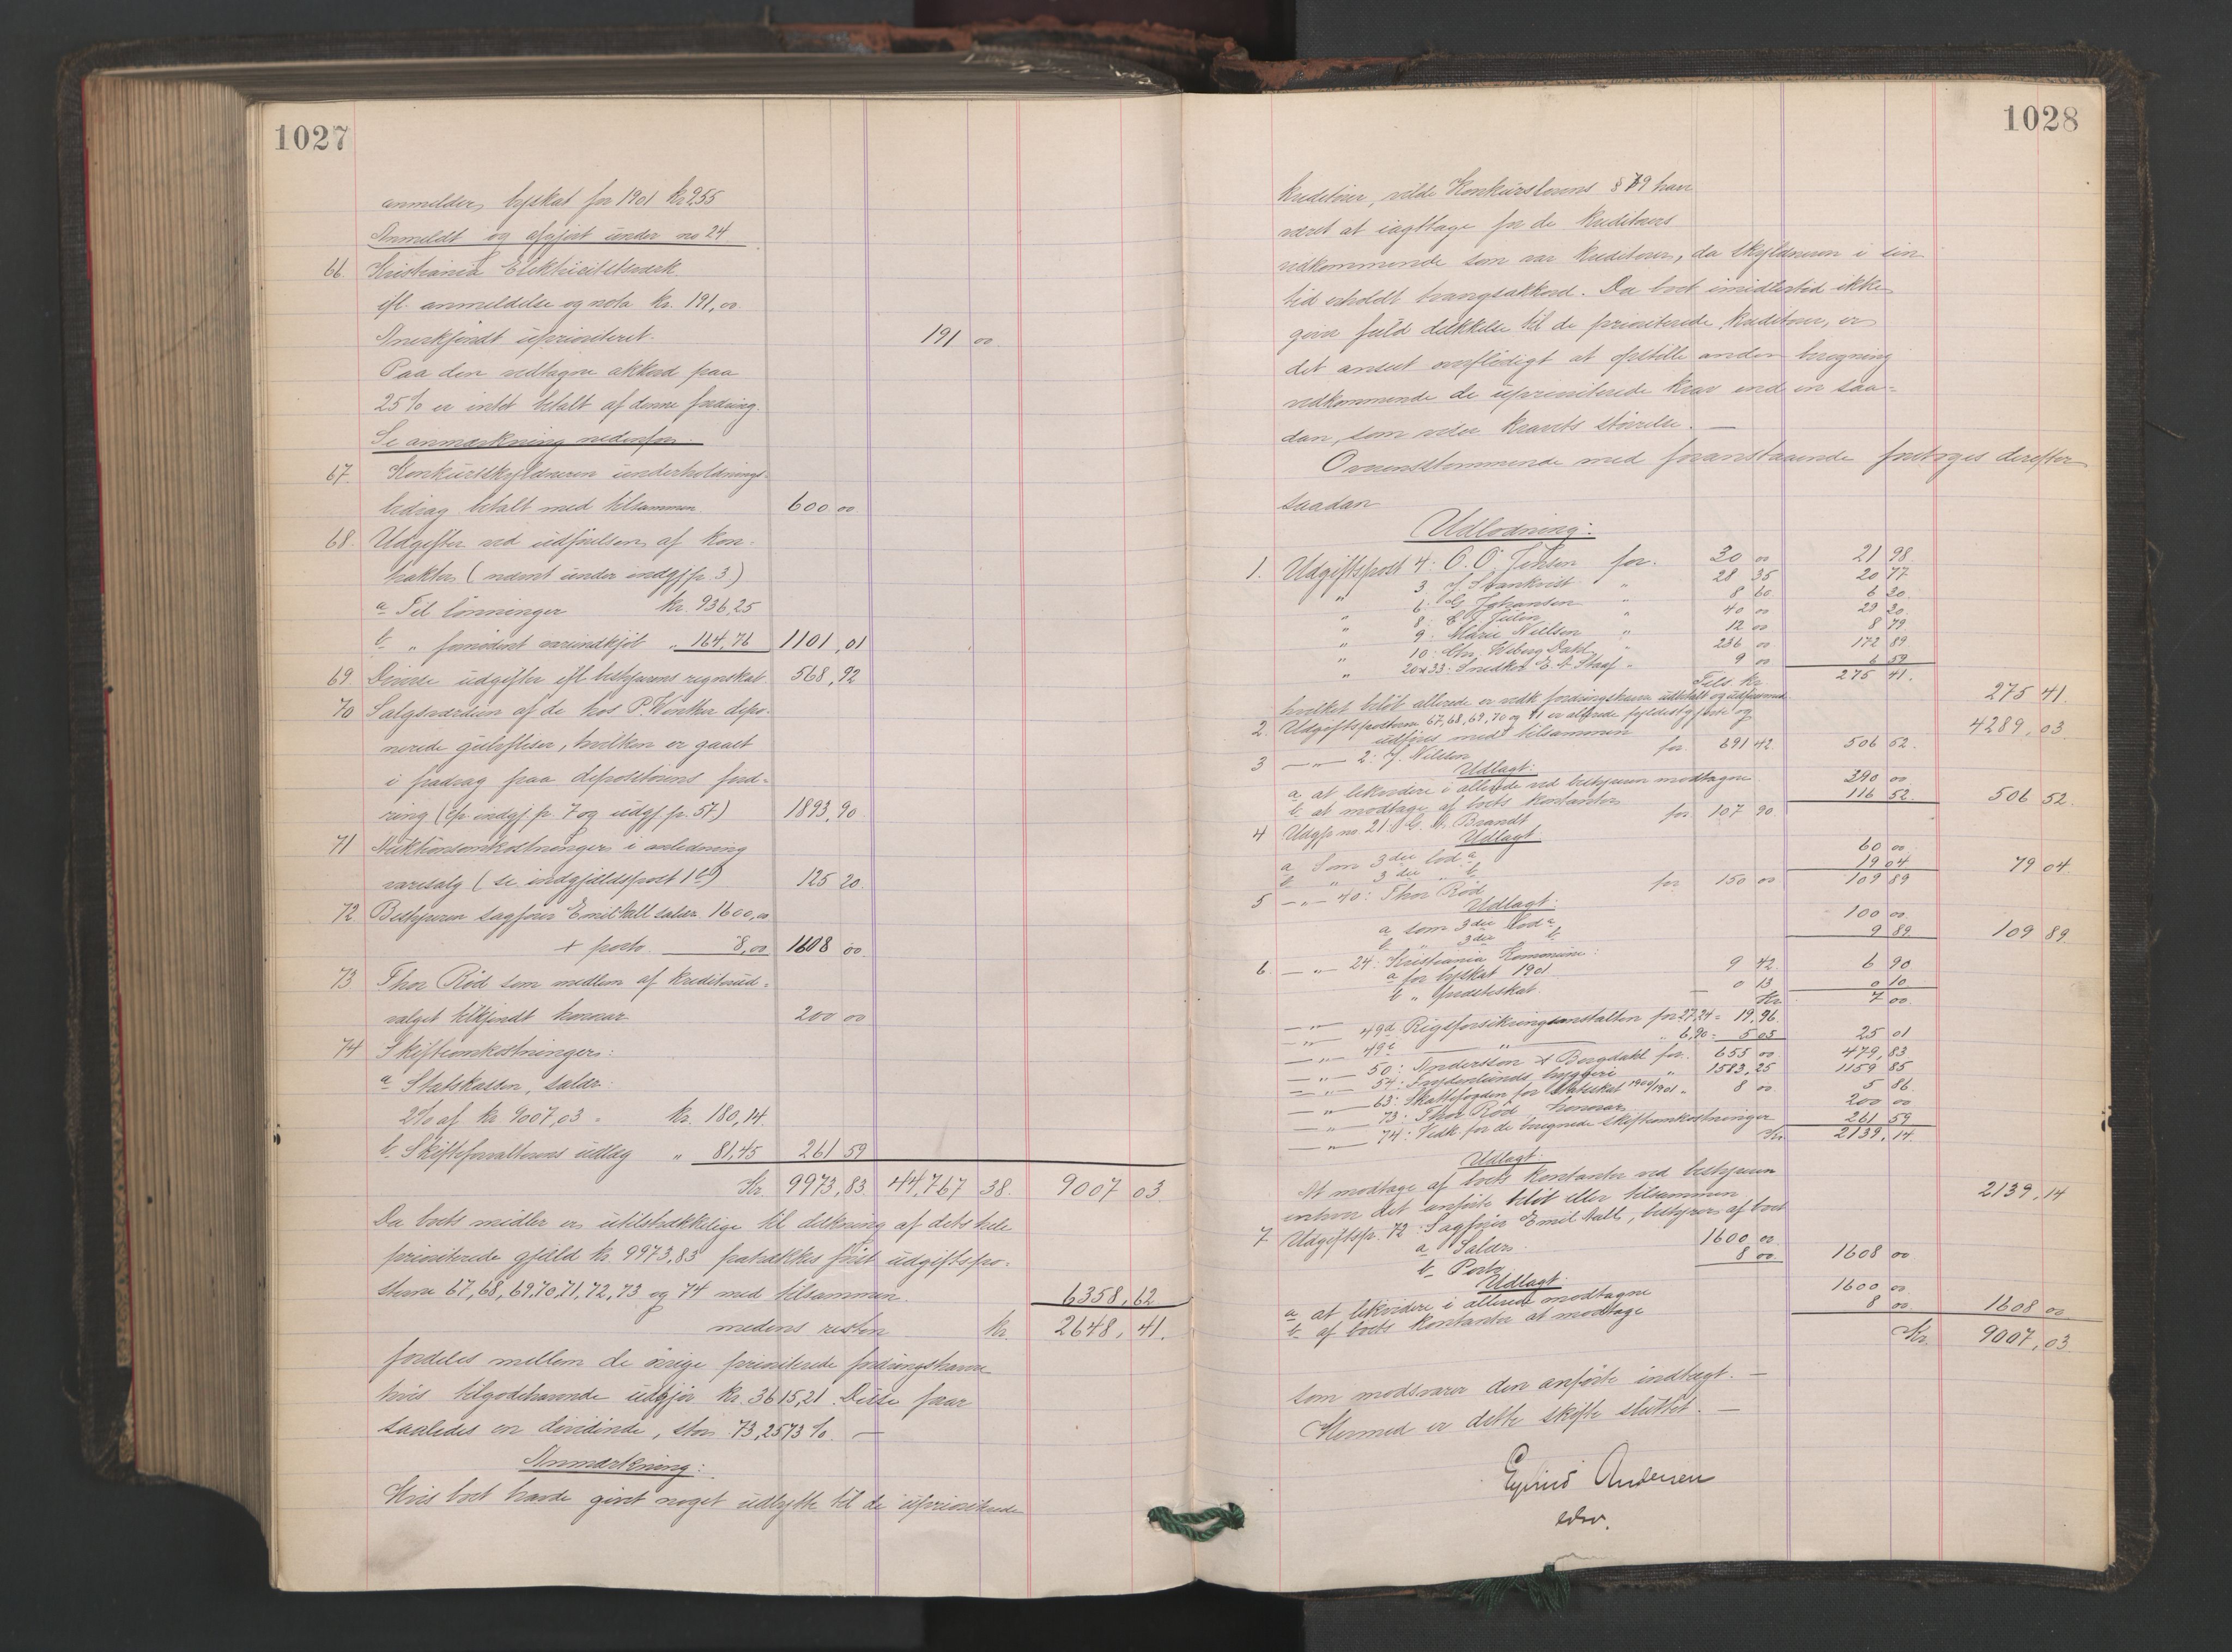 1027
anmelder byskat for 1901 kr 255
Anmeldt og afgjort under no 24
66 Kristiania Elektricitetsverk
ifl. anmeldelse og nota kr. 191,00
Anerkjendt uprioriteret. 191 00
Paa den vedtagne akkord paa
25% er intet betalt af denne fordring.
Se anmærkning nedenfor.
67. Konkursskyldneren underholdnings-
bidrag betalt med tilsammen 600 00
68. Udgifter ved udførelsen af kon-
trakter (nævnt under indgj. p. 3)
a Til lønninger kr. 936,25
b " fornødent vareindkjøb " 164,76 1101,01
69 Diverse udgifter ifl. bestyrerens regnskab 568,92
70 Salgsværdien af de hos P. Winther depo-
nerede gulvfliser, hvilken er gaaet
i fradrag paa depositørens ford-
ring (cfr. indgj. p. 7 og udgj. p. 57) 1893,90
71 Auktionsomkostninger i anledning
varesalg (se indgjældspost 1 b) 125 20
72. Bestyreren sagfører Emil Aall salær 1600,00
+ porto 8,00 1608 00
73 Thor Rød som medlem af kreditorud-
valget tilkjendt honorar 200 00
74 Skifteomkostninger:
a Statskassen, salær:
2% af kr 9007,03 = kr. 180,14.
b. Skifteforvalterens udlæg " 81,45 261 59
Kr. 9973,83 44,767 38. 9007 03
Da boets midler er utilstrækkelige til dækning af dets hele
prioriterede gjæld kr. 9973,83 fratrækkes først udgiftspo-
sterne 67, 68, 69, 70, 71, 72, 73 og 74 med tilsammen. 6358,62
medens resten kr. 2648,41.
fordeles mellem de øvrige prioriterede fordringshavere
hvis tilgodehavende udgjør kr. 3615,21. Disse faar
saaledes en dividende, stor 73,2573 %. —
Anmærkning:
Hvis boet havde givet noget udbytte til de uprioriterede
1028
kreditorer, vilde Konkurslovens § 79 have
været at iagttage for de kreditorers
vedkommende som var kreditorer, da skyldneren i sin
tid erholdt tvangsakkord. Da boet imidlertid ikke
giver fuld dækkelse til de prioriterede kreditorer, er
det anseet overflødigt at opstille anden beregning
vedkommende de uprioriterede krav end en saa-
dan, som viser kravets størrelse. —
Overensstemmende med foranstaaende foretoges derefter
saadan
Udlodning:
1. Udgiftspost 4: O. O. Jensen for. 30 00 21 98
" 3 J. Strankvist " 28 35 20 77
" 6: G Johansen " 8 60 6 30
" 8: E. J. Julin " 40 00 29 30
" 9: Marie Nielsen " 12 00 8 79
" 10: Chr. Weberg Dahl " 236 00 172 89
" 20 & 33: Snedker E. A. Staaf " 9 00 6 59
Tils. kr. 275 41.
hvilket beløb allerede er vedk. fordringshavere udbetalt og udføres med 275 41
2. Udgiftsposterne 67, 68, 69, 70 og 71 er allerede fyldestgjorte og
udføres med tilsammen 4289,03
3 —"— 2: J. Nilsen for 691 42 506 52
Udlagt:
a at likvidere i allerede ved bestyreren modtagne 390 00
b at modtage af boets kontanter 116 52 506 52
4 Udgp no 21: G. A. Brandt for 107 90
Udlagt
a Som 3die lod a 60 00
b " 3die " b 19 04 79 04
5 —"— 40: Thor Rød for 150 00 109 89
Udlagt:
a som 3die lod a 100 00
b " 3die b 9 89 109 89
6 —"— 24: Kristiania Kommune:
a for byskat 1901 9 42 6 90
b " Godtskat 0 13 0 10
Kr. 7 00
—"— 49a Rigsforsikringsanstalten for 27,24 = 19,96
—"— 49b " " 6,90 = 5 05 25 01
—"— 50: Anderssen & Bergdahl for. 655 00 479,83
—"— 54: Frydenlunds bryggeri " 1583,25 1159 85
—"— 63: Skattefogden for Statsskat 1900/1901 " 8 00 5 86
—"— 73: Thor Rød, honorar 200 00
—"— 74: Vedk. for de beregnede skifteomkostninger 261 59
Kr. 2139,14
Udlagt:
At modtage af boets kontanter ved bestyreren
enhver det anførte beløb eller tilsammen 2139,14
7 Udgiftsp. 72: Sagfører Emil Aall, bestyrer af boet
a Salær 1600 00
b Porto 8 00 1608 00
Udlagt:
a at likvidere i allerede modtagne 1600 00
b af boets kontanter at modtage 8 00 1608 00
Kr. 9007,03
som modsvarer den anførte indtægt. —
Hermed er dette skifte sluttet. —
Eyvind Andersen
edsv.